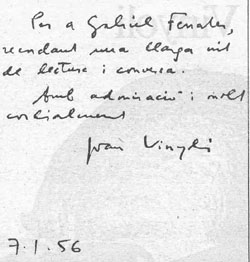 Per a Gabriel Ferrater,
recordant una llarga nit
de lectura i conversa.
Amb admiració i molt
cordialment
Joan Vinyoli
7.1.56
Vinyoli